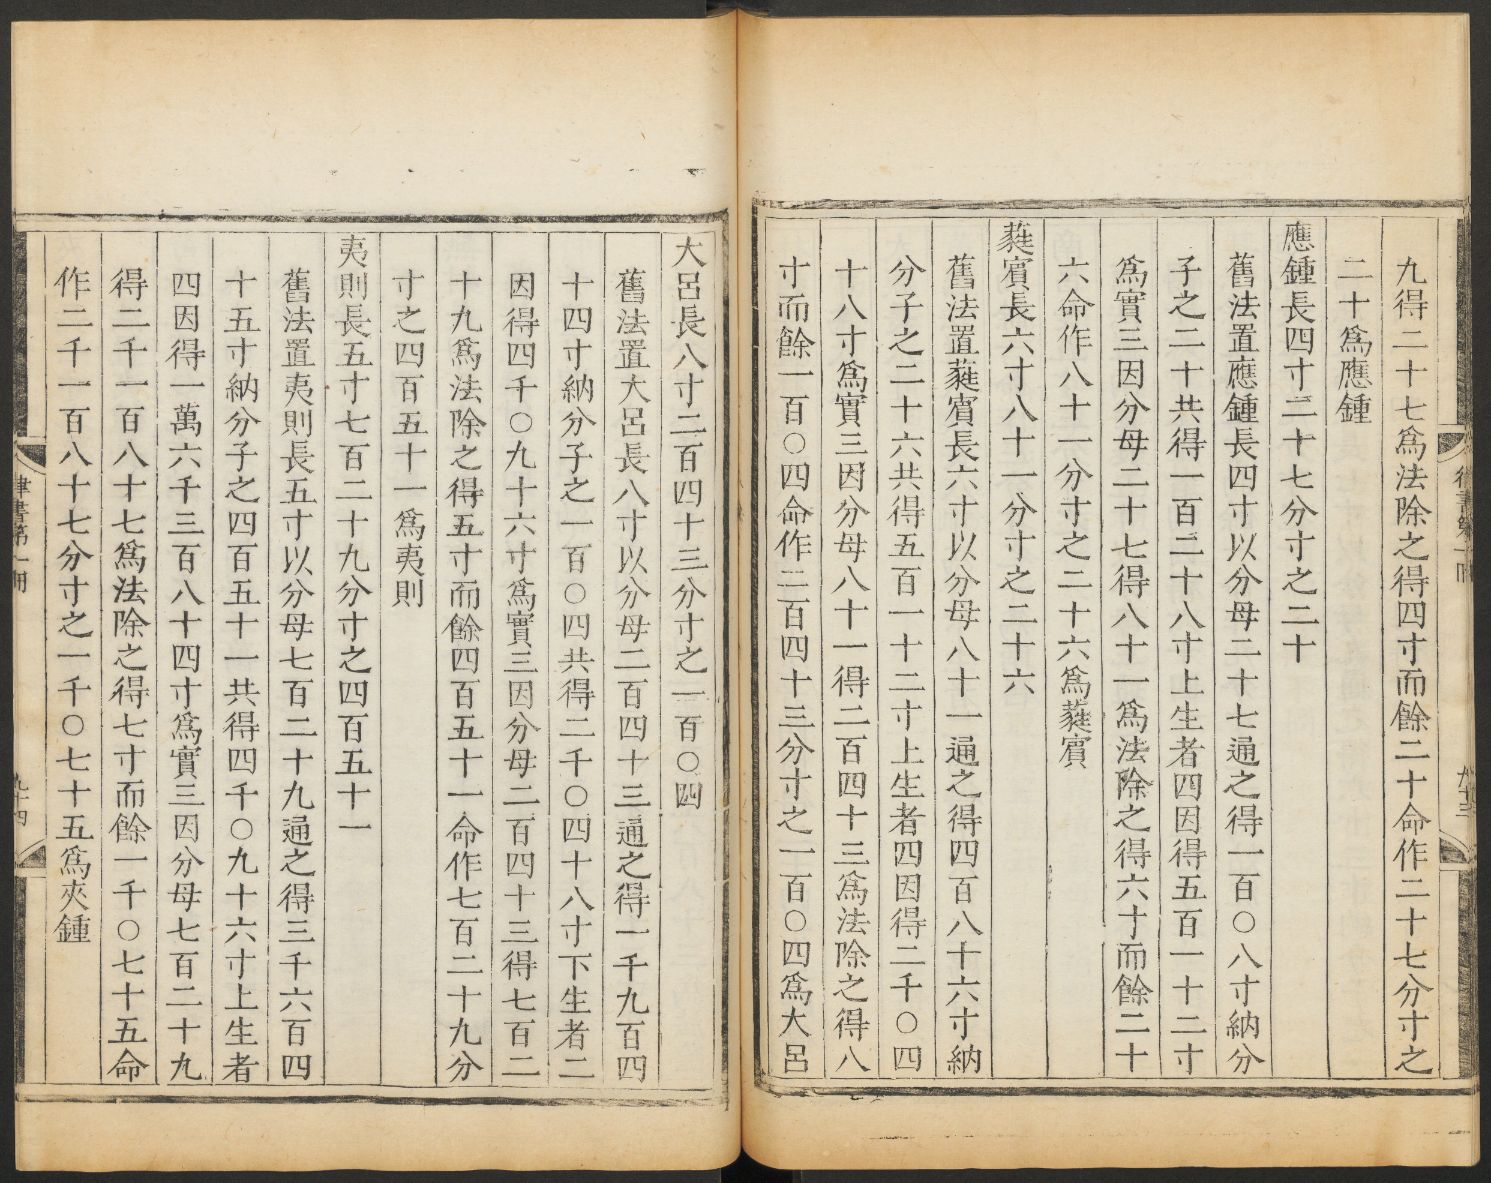 九得二十七爲法除之得四寸而餘二十命作二十七分寸之
二十爲應鍾
應鍾長四寸二十七分寸之二十
舊法置應鍾長四寸以分母二十七通之得一百〇八寸納分
子之二十共得一百二十八寸上生者四因得五百一十二寸
爲實三因分母二十七得八十一爲法除之得六寸而餘二十
六命作八十一分寸之二十六爲蕤賔
蕤賔長六寸八十一分寸之二十六
舊法置蕤賔長六寸以分母八十一通之得四百八十六寸納
分子之二十六共得五百一十二寸上生者四因得二千〇四
十八寸爲實三因分母八十一得二百四十三爲法除之得八
寸而餘一百〇四命作二百四十三分寸之一百〇四爲大呂
大呂長八寸二百四十三分寸之一百〇四
舊法置大呂長八寸以分母二百四十三通之得一千九百四
十四寸納分子之一百〇四共得二千〇四十八寸下生者二
因得四千〇九十六寸爲實三因分母二百四十三得七百二
十九爲法除之得五寸而餘四百五十一命作七百二十九分
寸之四百五十一爲夷則
夷則長五寸七百二十九分寸之四百五十一
舊法置夷則長五寸以分母七百二十九通之得三千六百四
十五寸納分子之四百五十一共得四千〇九十六寸上生者
四因得一萬六千三百八十四寸爲實三因分母七百二十九
得二千一百八十七爲法除之得七寸而餘一千〇七十五命
作二千一百八十七分寸之一千〇七十五爲夾鍾